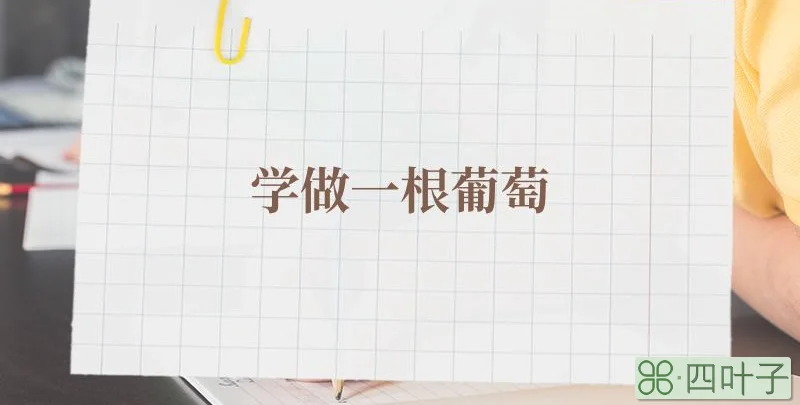 学做一根葡萄
四叶子